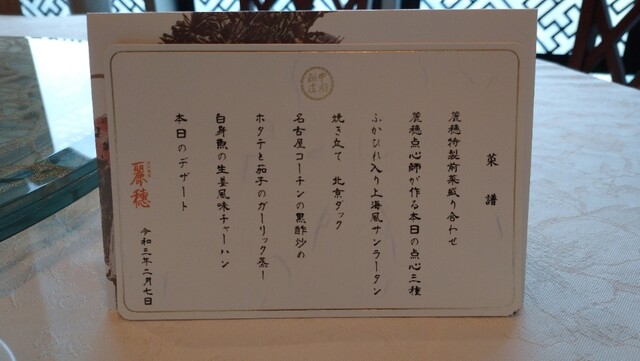 菜譜
麗穂特製前菜盛り合わせ
麗穂点心師が作る本日の点心三種
ふかひれ入り上海風サンラータン
焼き立て 北京ダック
名古屋コーチンの黒酢炒め
ホタテと茄子のガーリック蒸し
白身魚の生姜風味チャーハン
本日のデザート
麗穂
令和三年二月七日